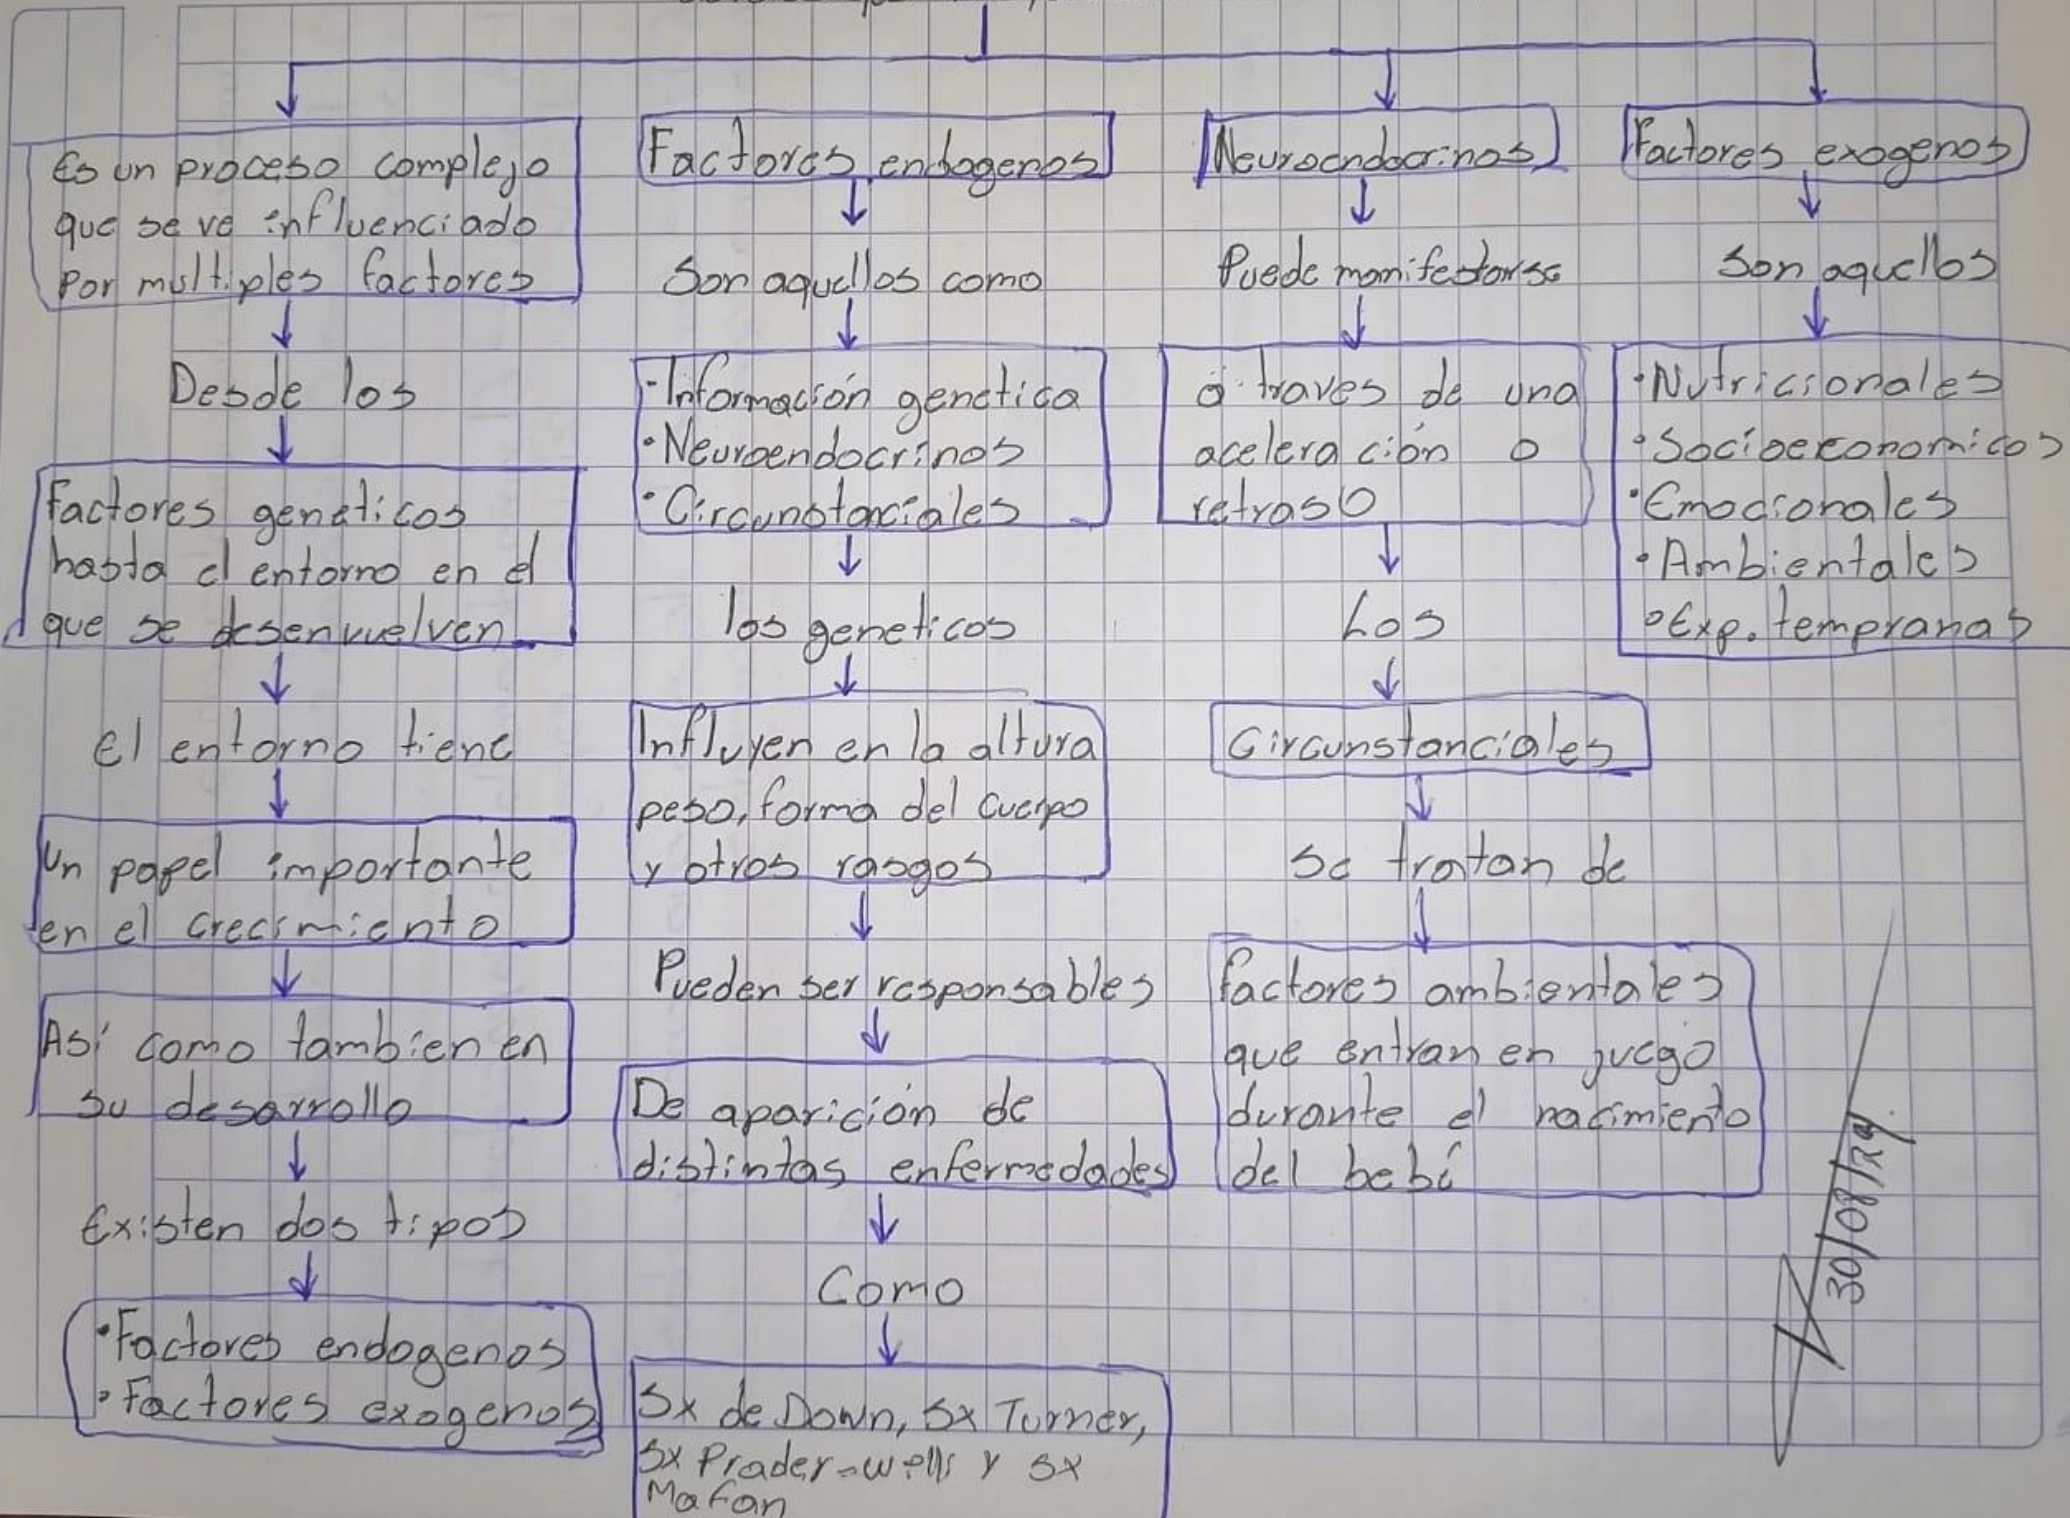 Es un proceso complejo
que se ve influenciado
por multiples factores
Desde los
factores geneticos
hasta el entorno en el
que se desenvuelven
El entorno tiene
Un papel importante
en el crecimiento
Así como tambien en
su desarrollo
Existen dos tipos
•Factores endogenos
•Factores exogenos
Factores endogenos
Son aquellos como
•Información genetica
•Neuroendocrinos
•Circunstanciales
los geneticos
Influyen en la altura
peso, forma del cuerpo
y otros rasgos
Pueden ser responsables
De aparición de
distintas enfermedades
Como
Sx de Down, Sx Turner,
Sx Prader-wells y Sx
Mafan
Neuroendocrinos
Puede manifestarse
a traves de una
aceleración o
retraso
Los
Circunstanciales
Se tratan de
factores ambientales
que entran en juego
durante el nacimiento
del bebé
Factores exogenos
Son aquellos
•Nutricionales
•Socioeconomicos
•Emocionales
•Ambientales
•Exp. tempranas
30/08/24